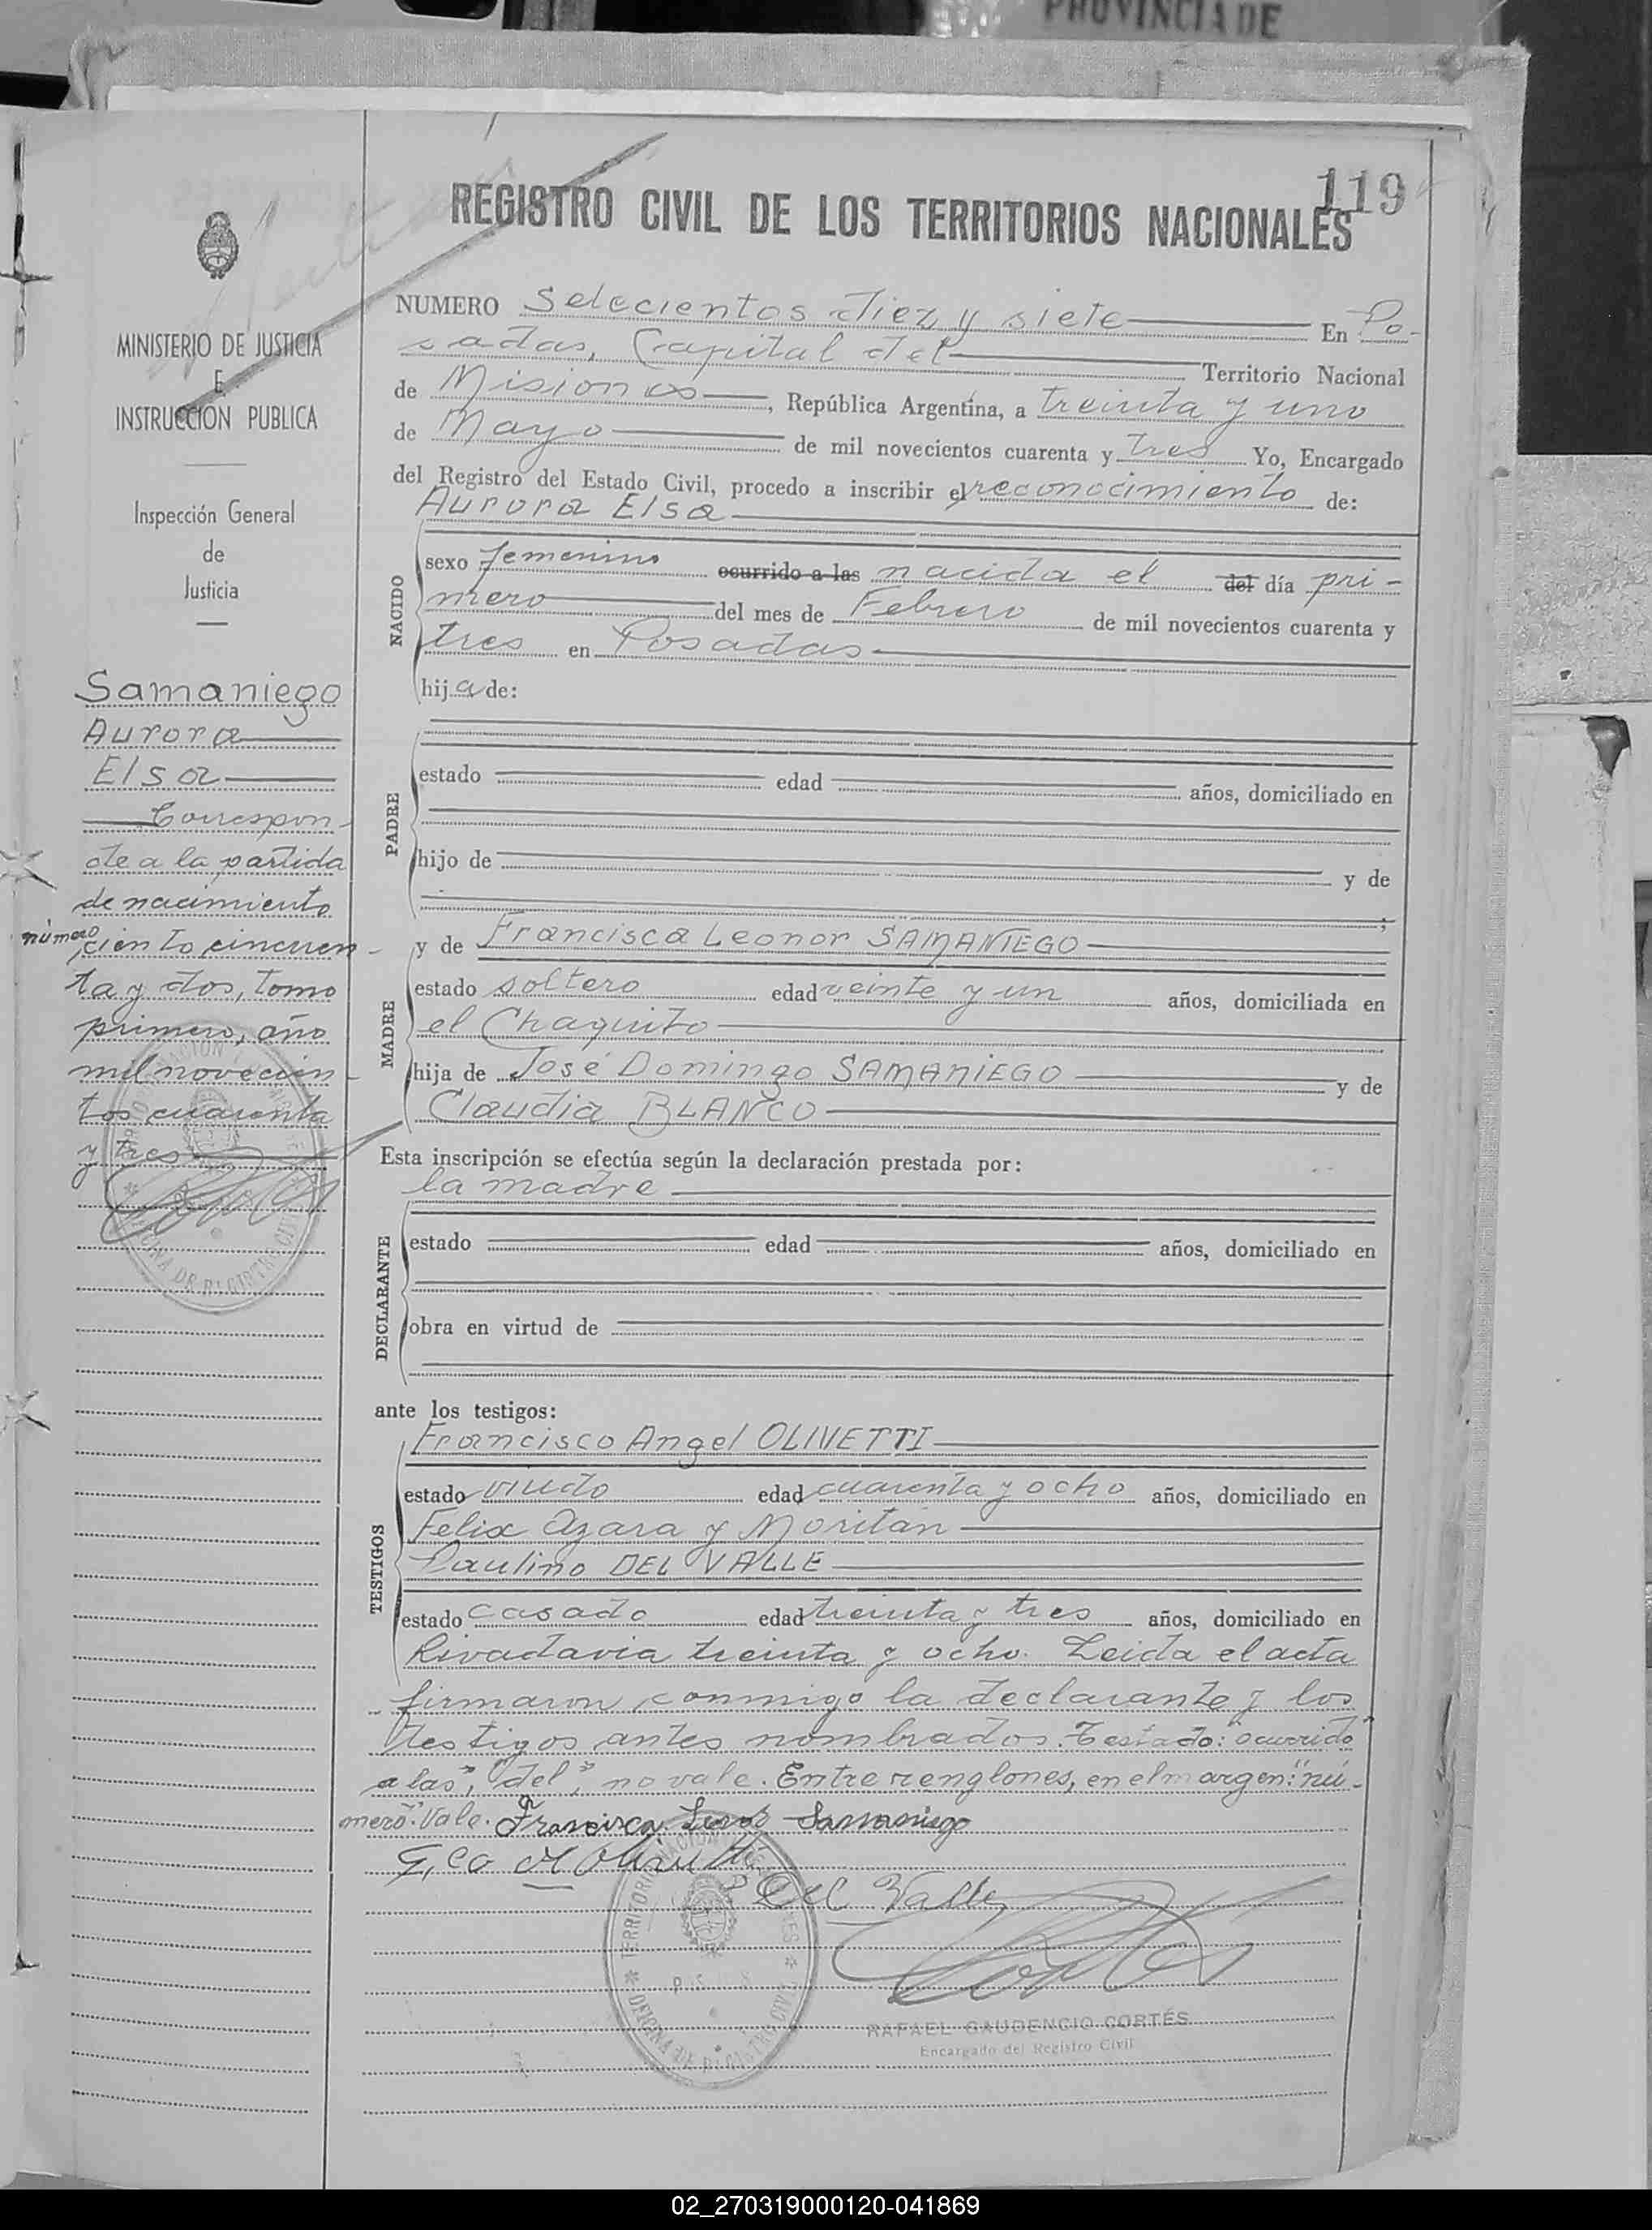 PROVINCIA DE
119
REGISTRO CIVIL DE LOS TERRITORIOS NACIONALES
MINISTERIO DE JUSTICIA
E
INSTRUCCION PUBLICA
Inspección General
de
Justicia
Samaniego
Aurora
Elsa
Correspon-
de a la partida
de nacimiento
número
ciento cincuen-
ta y dos, tomo
primero, año
mil novecien-
tos cuarenta
y tres
NUMERO Setecientos diez y siete En Po-
sadas, Capital del Territorio Nacional
de Misiones, República Argentina, a treinta y uno
de Mayo de mil novecientos cuarenta y tres Yo, Encargado
del Registro del Estado Civil, procedo a inscribir el reconocimiento de:
Aurora Elsa
NACIDO
sexo femenino ocurrido a las nacida el del día pri-
mero del mes de Febrero de mil novecientos cuarenta y
tres en Posadas
hija de:
PADRE
estado edad años, domiciliado en
hijo de y de
;
MADRE
y de Francisca Leonor SAMANIEGO
estado soltera edad veinte y un años, domiciliada en
el Chaquito
hija de José Domingo SAMANIEGO y de
Claudia BLANCO
Esta inscripción se efectúa según la declaración prestada por:
la madre
DECLARANTE
estado edad años, domiciliado en
obra en virtud de
ante los testigos:
TESTIGOS
Francisco Angel OLIVETTI
estado viudo edad cuarenta y ocho años, domiciliado en
Felix Azara y Moritán
Paulino DEL VALLE
estado casado edad treinta y tres años, domiciliado en
Rivadavia treinta y ocho. Leida el acta
firmaron conmigo la declarante y los
testigos antes nombrados. Testado: "ocurrido
a las", "del", no vale. Entre renglones, en el margen: "nú-
mero". Vale. Francisca Leonor Samaniego
Fco A Olivetti
P Del Valle
Cortés
RAFAEL GAUDENCIO CORTÉS
Encargado del Registro Civil
OFICINA DE REGISTRO CIVIL
02_270319000120-041869